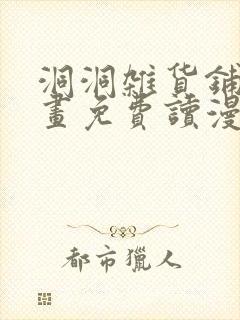 洞洞雜貨鋪
畫免費讀漫
都市獵人